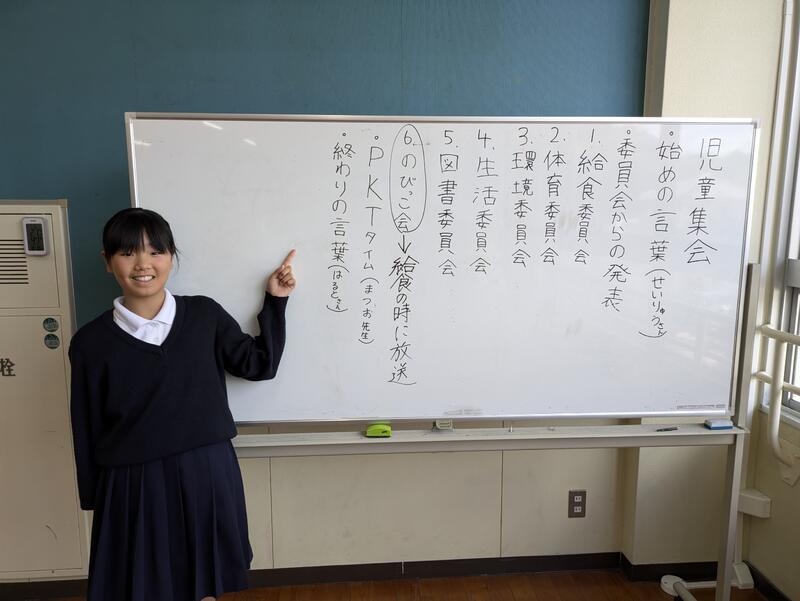 児童集会
・始めの言葉(せいりゅうさん)
・委員会からの発表
1. 給食委員会
2. 体育委員会
3. 環境委員会
4. 生活委員会
5. 図書委員会
6. のびっこ会→給食の時に放送
・PKTタイム(まつお先生)
終わりの言葉(はるとさん)
栓